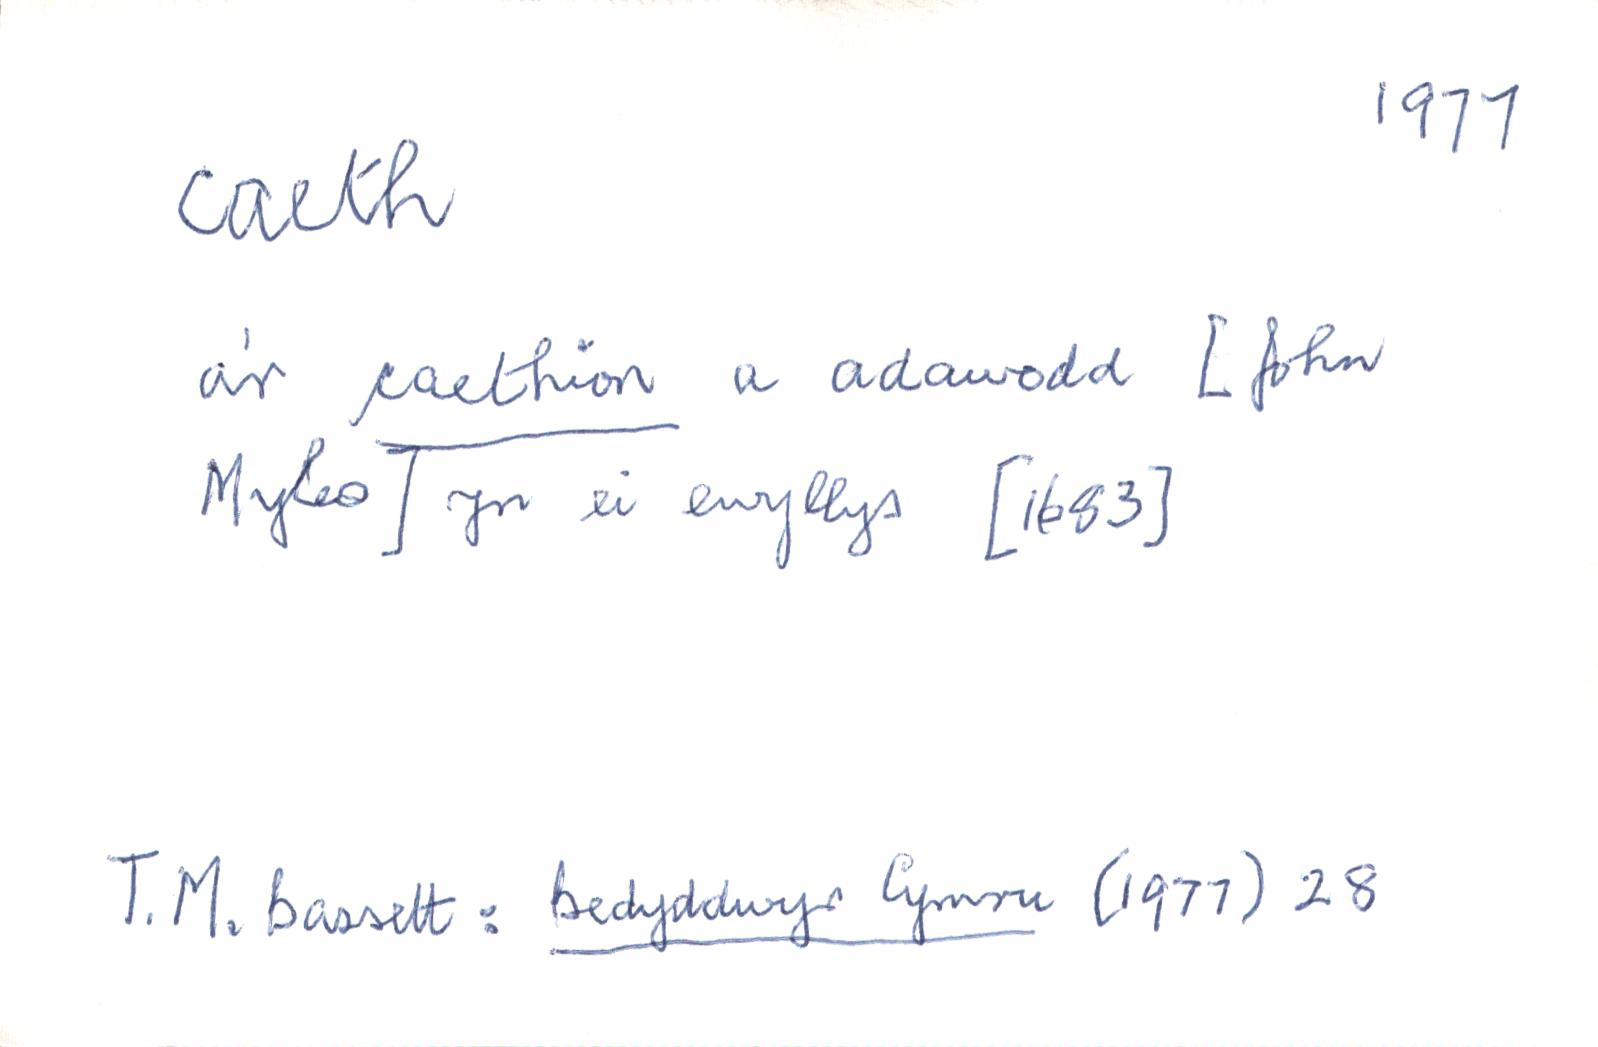 1977
caeth
a'r caethion a adawodd [John
Myles] yn ei ewyllys [1683]
T.M. Bassett: Bedyddwyr Cymru (1977) 28